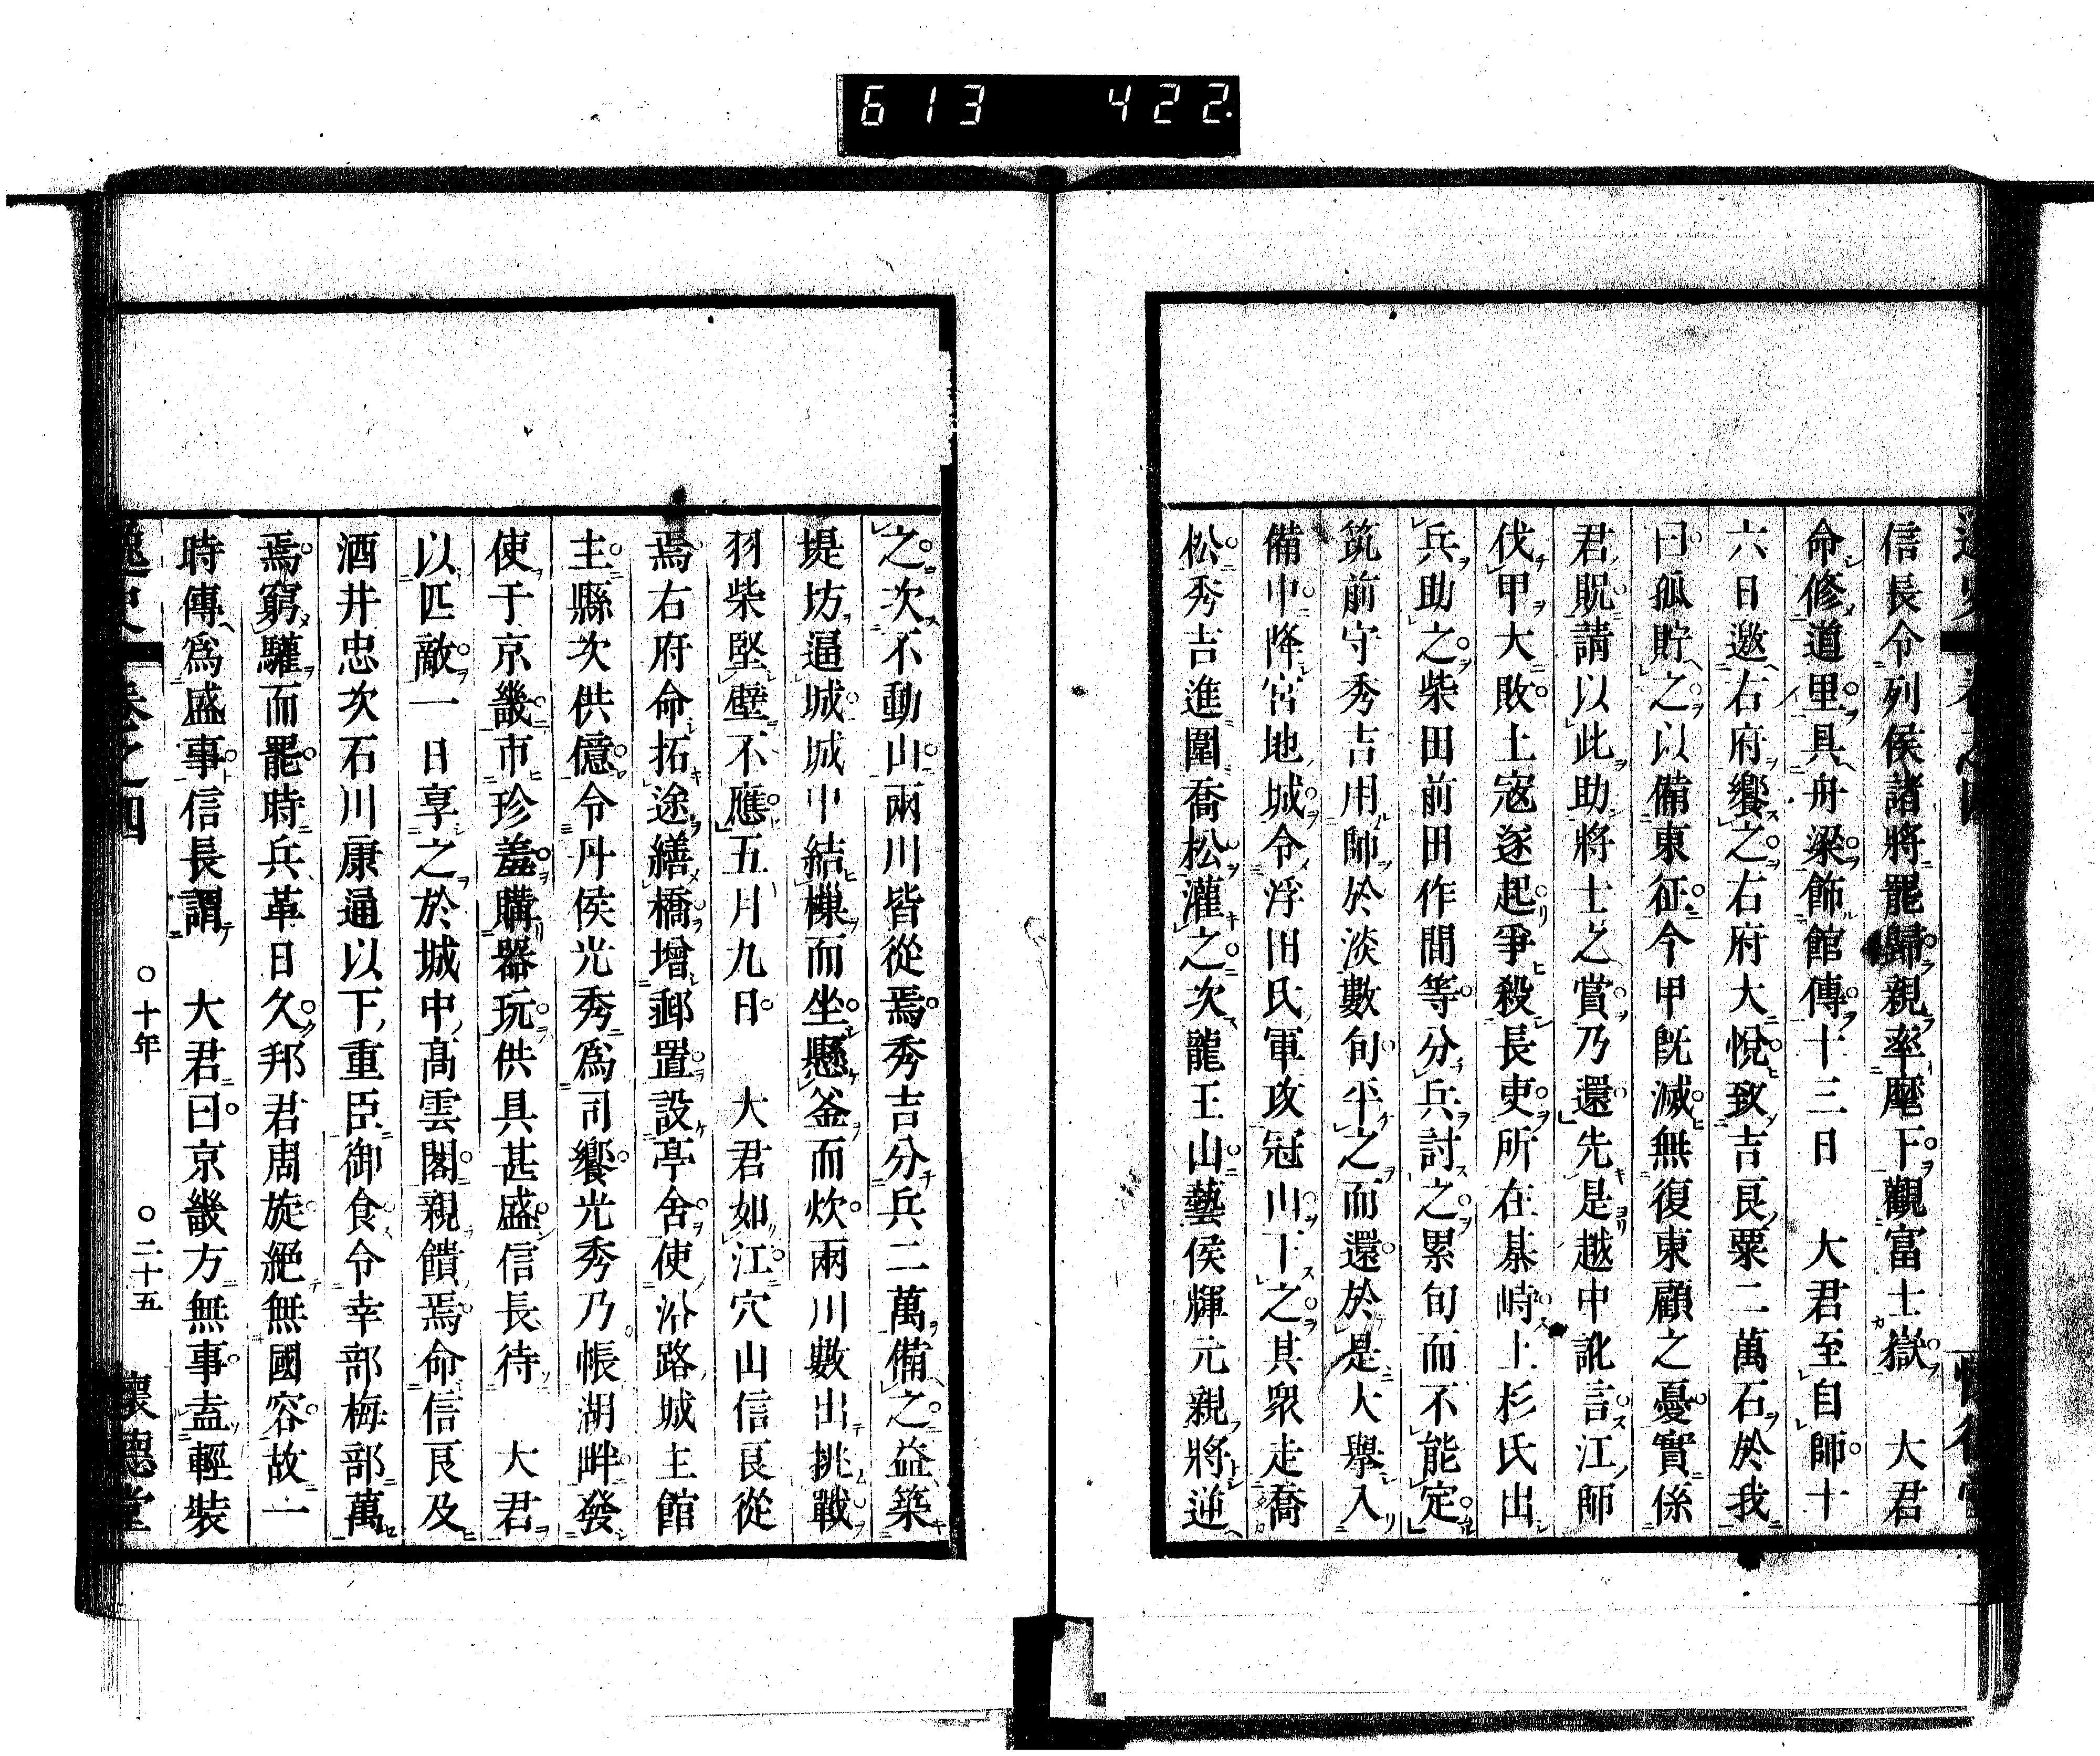 613 422
信長令列侯諸將罷歸親率麾下觀富士嶽 大君
命修道里具舟梁飾館傳十三日 大君至自師十
六日邀右府饗之右府大悅致吉良粟二萬石於我
曰孤貯之以備東征今甲旣滅無復東顧之憂實係
君貺請以此助將士之賞乃還先是越中訛言江師
伐甲大敗土寇遂起爭殺長吏所在棊峙上杉氏出
兵助之柴田前田作間等分兵討之累旬而不能定
筑前守秀吉用師於淡數旬平之而還於是大舉入
備中降宮地城令浮田氏軍攻冠山下之其衆走喬
松秀吉進圍喬松灌之次龍王山藝侯輝元親將逆
之次不動山兩川皆從焉秀吉分兵二萬備之益築
堤坊逼城城中結樔而坐懸釜而炊兩川數出挑戰
羽柴堅壁不應五月九日 大君如江穴山信良從
焉右府命拓途繕橋增郵置設亭舍使沿路城主館
主縣次供億令丹侯光秀爲司饗光秀乃帳湖畔發
使于京畿市珍羞購器玩供具甚盛信長待 大君
以匹敵一日享之於城中高雲閣親饋焉命信良及
酒井忠次石川康通以下重臣御食令幸部梅部萬
焉窮驩而罷時兵革日久邦君周旋絕無國容故一
時傳爲盛事信長謂 大君曰京畿方無事盍輕裝
逸史 卷之四 ○十年 ○二十五 懷德堂